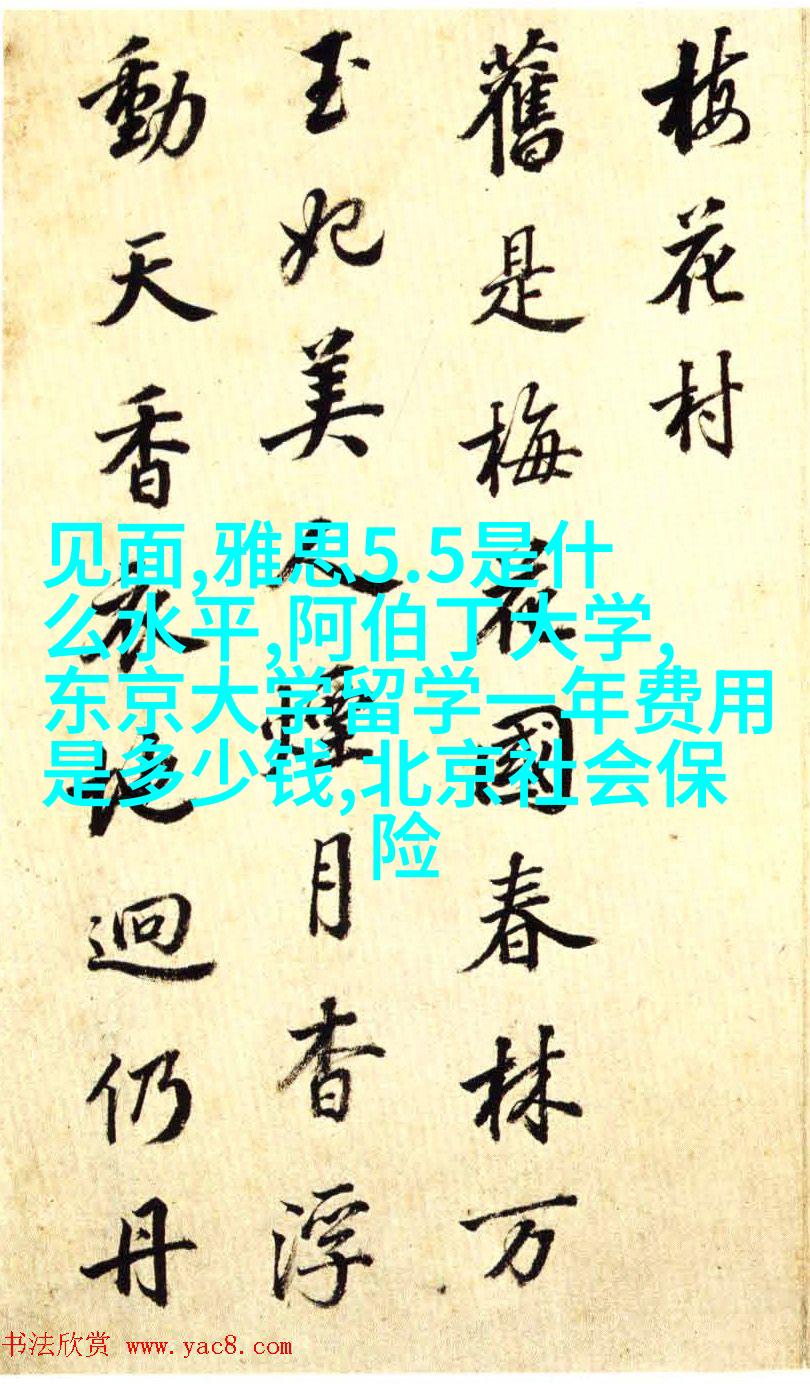 梅花村
舊是梅花國春林万
玉妃美人種月杳浮
動天香地迥仍丹
见面,雅思5.5是什
么水平,阿伯丁大学,
东京大学留学一年费用
是多少钱,北京社会保
险
书法欣赏 www.yac8.com